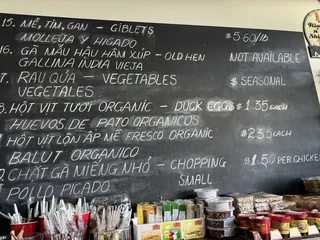 15. MỀ, TIM, GAN - GIBLETS $5.60/lb
MOLLEJA Y HIGADO
16. GÀ MẪU HẬU HẦM XÚP - OLD HEN NOT AVAILABLE
GALLINA INDIA VIEJA
17. RAU QUẢ - VEGETABLES $ SEASONAL
VEGETALES
HỘT VỊT TƯƠI ORGANIC - DUCK EGGS $1.35 EACH
HUEVOS DE PATO ORGANICOS
HỘT VỊT LỘN ẤP MÊ FRESCO ORGANIC $2.35 EACH
BALUT ORGANICO
CHẶT GÀ MIẾNG NHỎ - CHOPPING SMALL $1.50 PER CHICKEN
POLLO PICADO